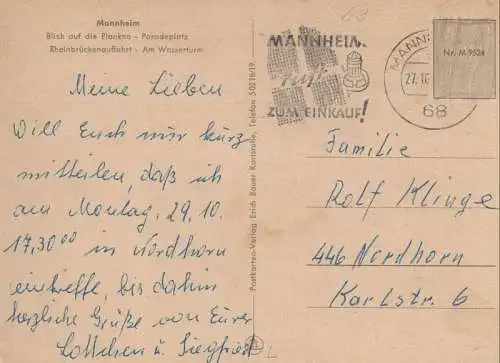 Mannheim
Blick auf die Planken - Paradeplatz
Rheinbrückenauffahrt - Am Wasserturm
Meine Lieben
Will Euch nur kurz
mitteilen, daß ich
am Montag, 29.10.
17,30 00 in Nordhorn
eintreffe, bis dahin
herzliche Grüße von Eurer
Lottchen u. Siegfried
Postkarten-Verlag Erich Bauer Karlsruhe, Telefon 50218/19
63
MANNHEIM
ruft
ZUM EINKAUF!
MANN
27.10
68
Nr. M 9524
Familie
Rolf Klinge
446 Nordhorn
Karlstr. 6